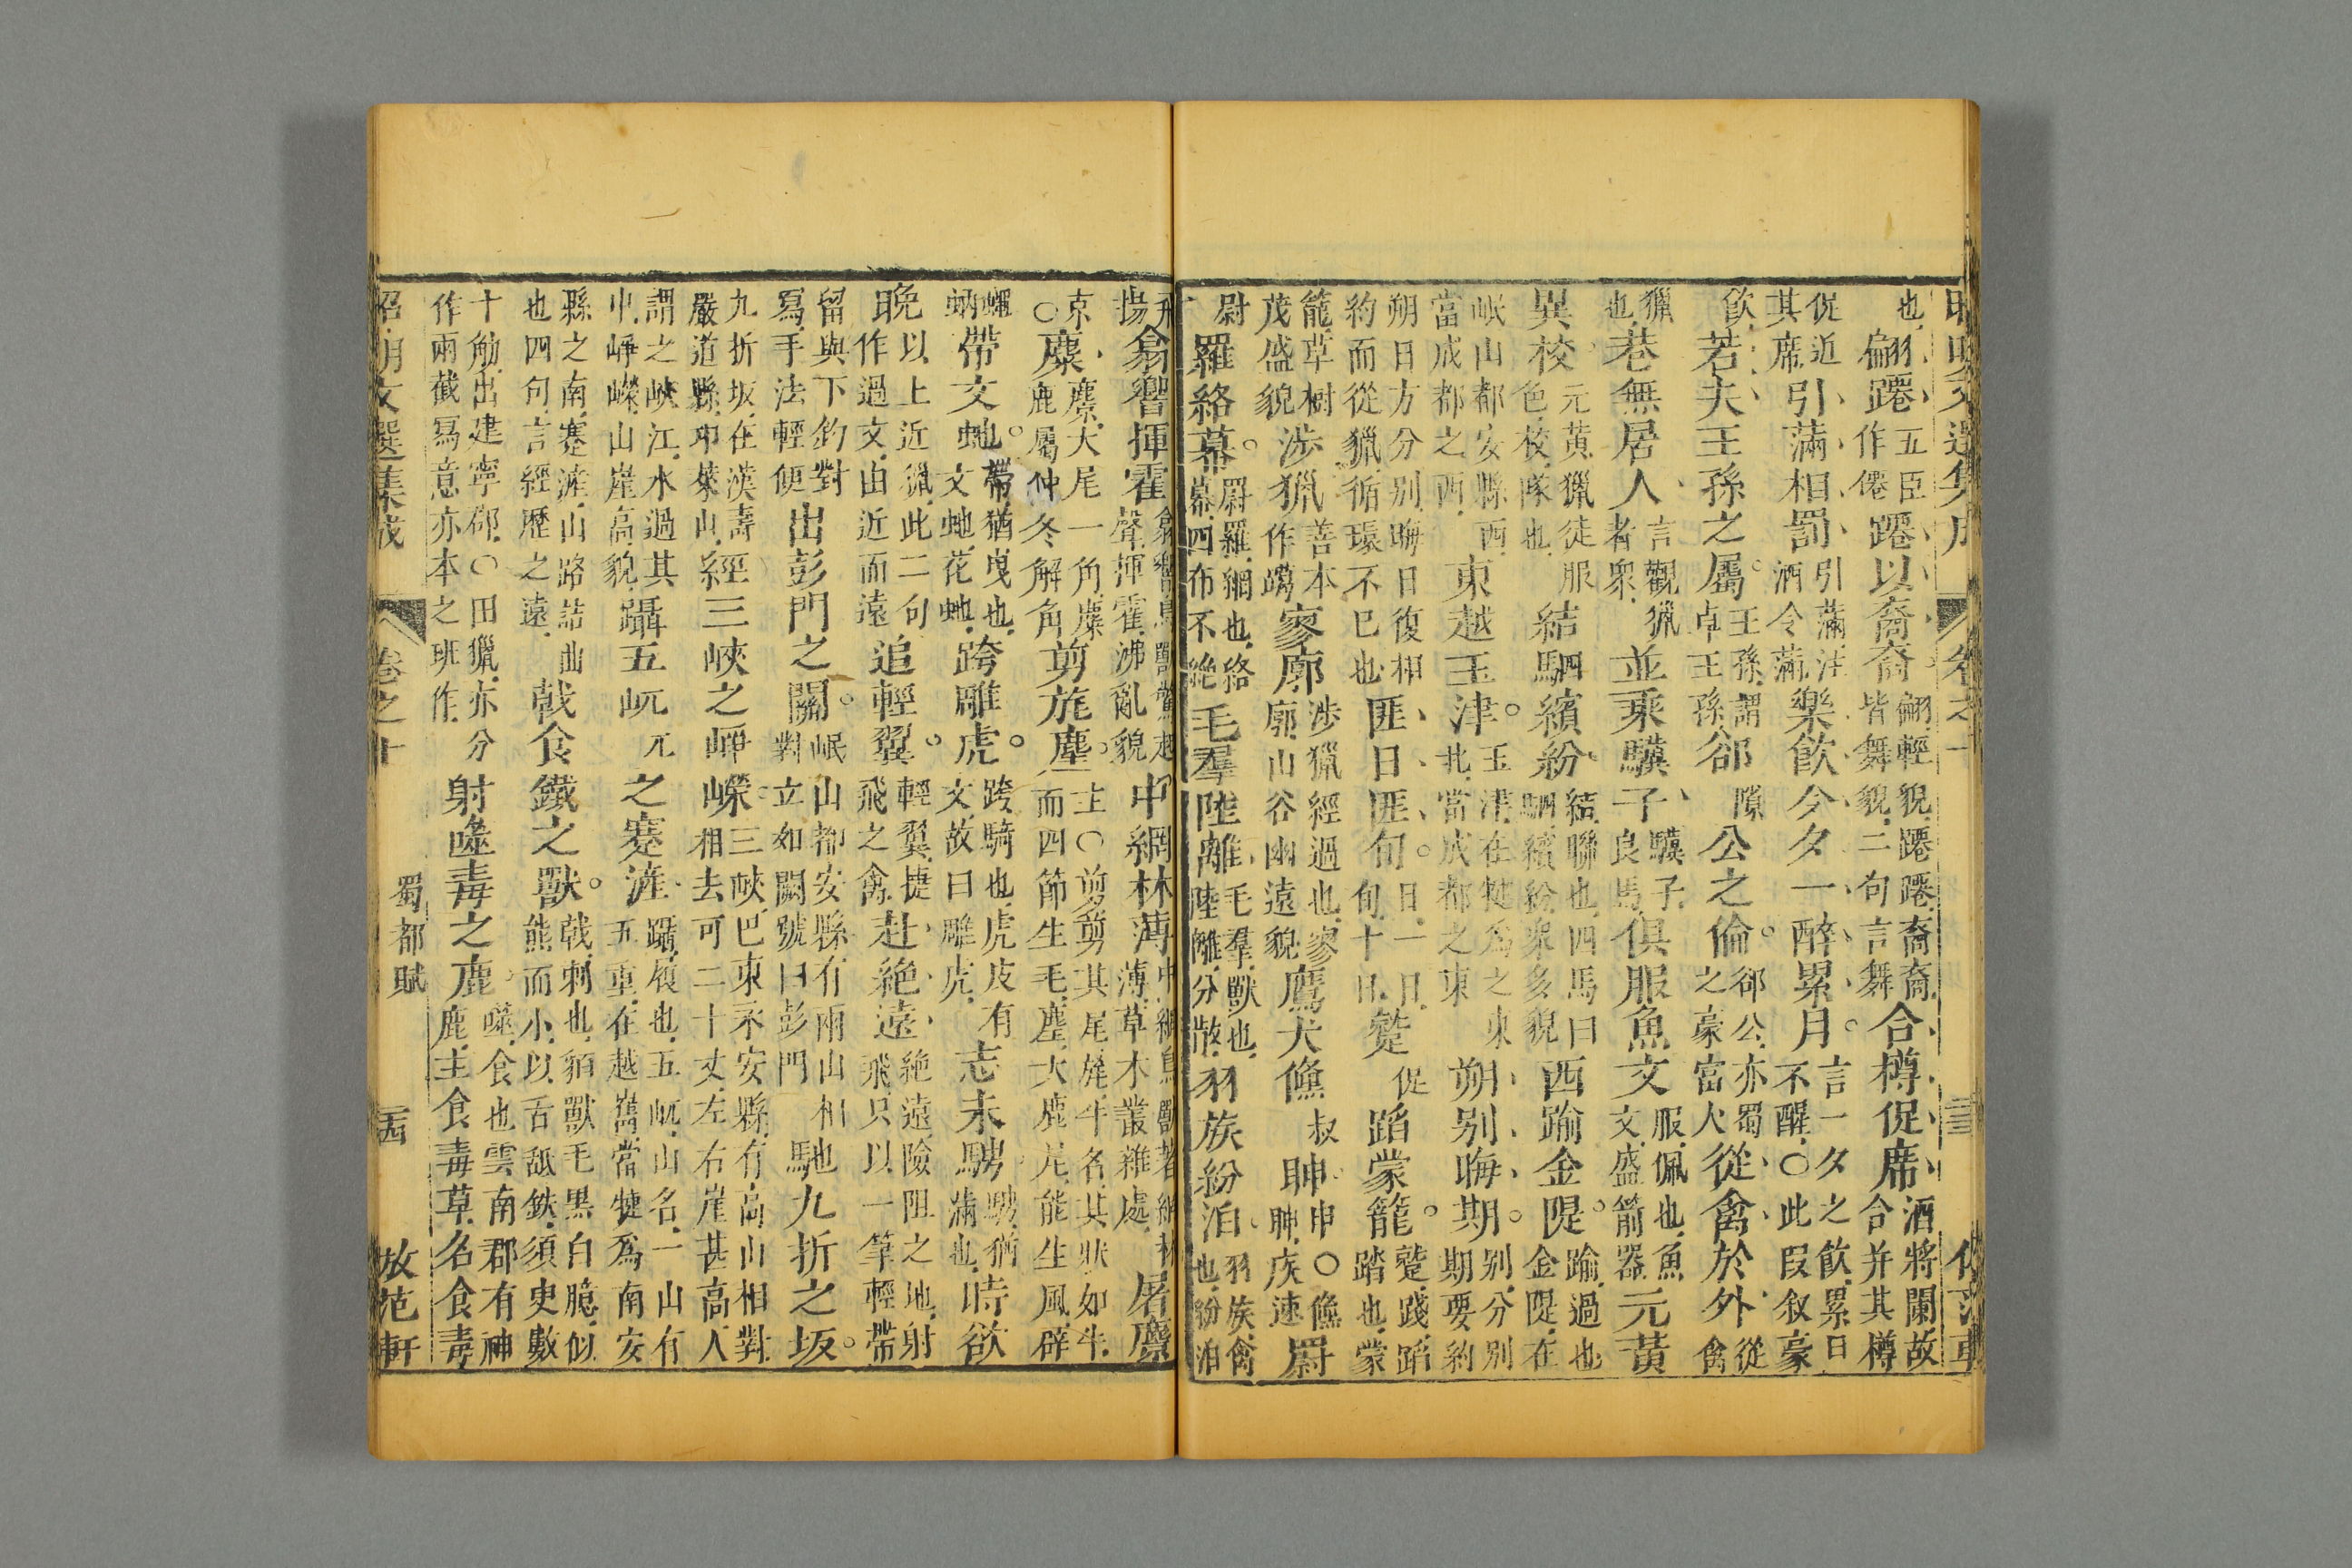 也、翩躚五臣作僊躚以裔裔。翩、輕貌、躚躚、裔裔、皆舞貌、二句言舞合樽促席、酒將闌故合并其樽
促近其席引滿相罰、引滿注酒令滿、樂飲今夕一醉累月。言一夕之飲、累日不醒、○此叚叙豪
飲、若夫王孫之屬。王孫、謂卓王孫郤隙公之倫。郤公、亦蜀之豪富人從禽於外、從禽
獵也、巷無居人、言觀獵者衆、並乘驥子、驥子、良馬、俱服魚文服、佩也、魚文、盛箭器元黃
異校元黃、獵徒服色、校、隊也、結駟繽紛、結、聯也、四馬曰駟、繽紛、衆多貌西踰金隄。踰、過也金隄、在
岷山都安縣西、當成都之西、東越玉津。玉津、在犍爲之東北、當成都之東朔别晦期。别、分别期、要約
朔日方分别、晦日復相約而從獵、循環不已也匪日匪旬。日、一日、旬、十日、䠞促蹈蒙籠。䠞、踐、蹈踏也、蒙
籠、草樹茂盛貌涉獵善本作躐寥廓涉獵、經過也、寥廓、山谷幽遠貌鷹犬儵叔眒申○儵眒、疾速罻
尉羅絡幕。罻羅、網也、絡幕、四布不絶毛羣陸離、毛羣、獸也、陸離、分散、羽族紛泊、羽族、禽也、紛泊
揚翕響揮霍中網林薄屠麖
京、麋、麖、大尾一角、麋○鹿屬仲冬解角剪旄麈。主○剪、剪其尾、旄、牛名、其狀如牛、而四節生毛、麈、大鹿、尾能生風、辟
蠅蚋帶文虵。帶、猶曳也、文虵、花虵、跨雕虎。跨、騎也、虎皮有文、故曰雕虎、志未騁騁、猶滿也、時欲
晚以上近獵、此二句作過文、由近而遠追輕翼。輕翼、捷飛之禽、赴絶遠、絶遠、險阻之地、射飛、只以一筆輕帶
留與下釣對寫、手法輕便出彭門之闕。岷山都安縣、有兩山相對立如闕號曰彭門馳九折之坂。
九折坂、在漢壽嚴道縣、邛萊山、經三峽之崢嶸。三峽、巴東永安縣、有高山相對相去可二十丈、左右崖甚高、人
謂之峽、江水過其中、崢嶸、山崖高貌、躡五屼兀之蹇滻、躡、履也、五屼、山名、一山有五重、在越嶲、當犍爲南安
縣之南、蹇滻、山路詰曲也四句、言經歷之遠、戟食鐵之獸。戟、刺也、貊獸毛黑白臆、似熊而小、以舌䑛鉄、須臾數
十觔、出建寧郡、○田獵、亦分作兩截寫意亦本之班作、射噬毒之鹿。噬、食也雲南郡有神鹿、主食毒草、名食毒
昭明文選集成　卷之十　蜀都賦　三四　放范軒